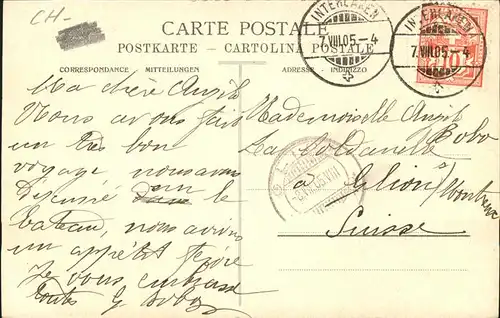 CH-
CARTE POSTALE
POSTKARTE - CARTOLINA POSTALE
CORRESPONDANCE - MITTEILUNGEN
ADRESSE - INDIRIZZO
INTERLAKEN
7.VIII.05-4
INTERLAKEN
7.VIII.05-4
10
Ma chère Angèle
Nous avons fait
un très bon
voyage, nous avons
Déjeuné sur le
bateau, nous avions
un appétit féroce
Je vous embrasse
toutes G Bobo
Mademoiselle Angèle
Bobo
La Soldanelle
à Glion s/Montreux
Suisse